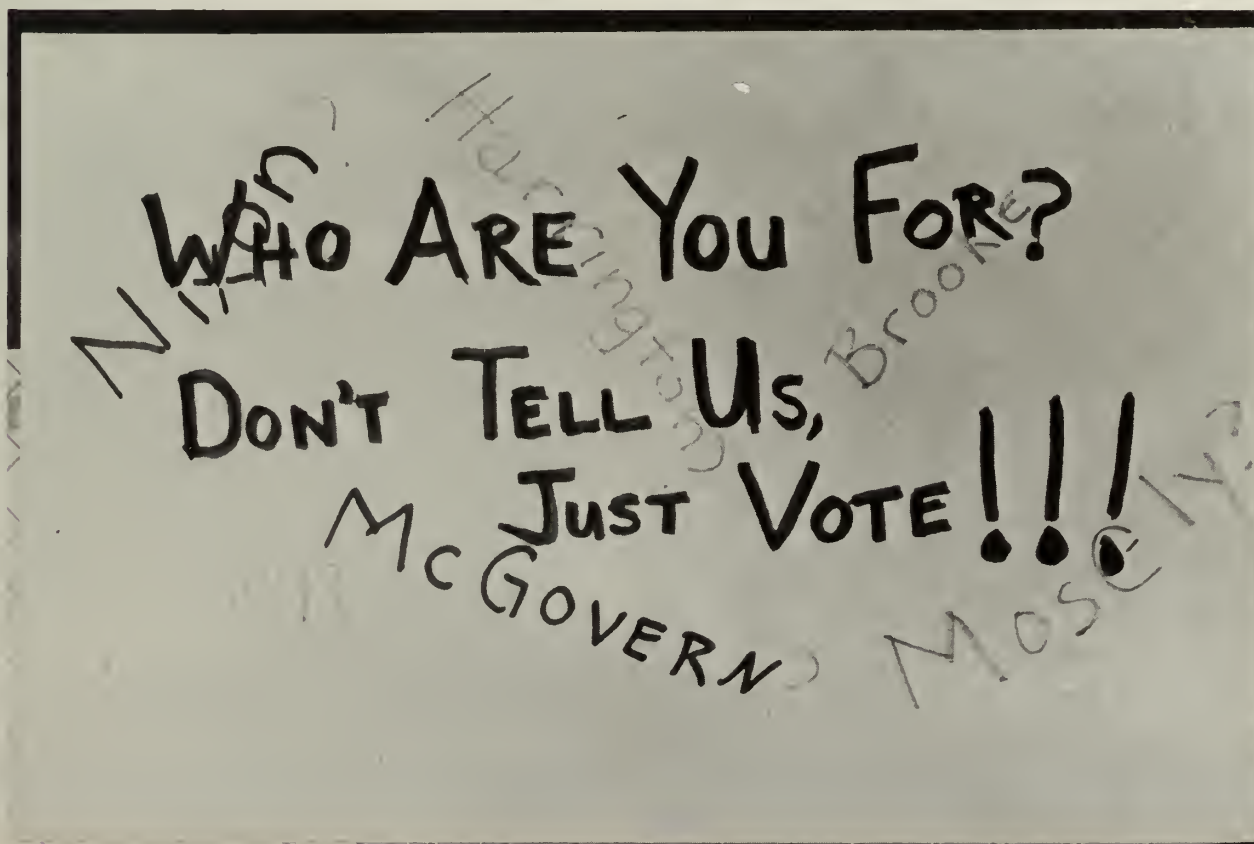 WHO ARE YOU FOR?
DON'T TELL US,
JUST VOTE!!!
Nixon?
Harrington?
Brooke
McGOVERN?
MosEly?